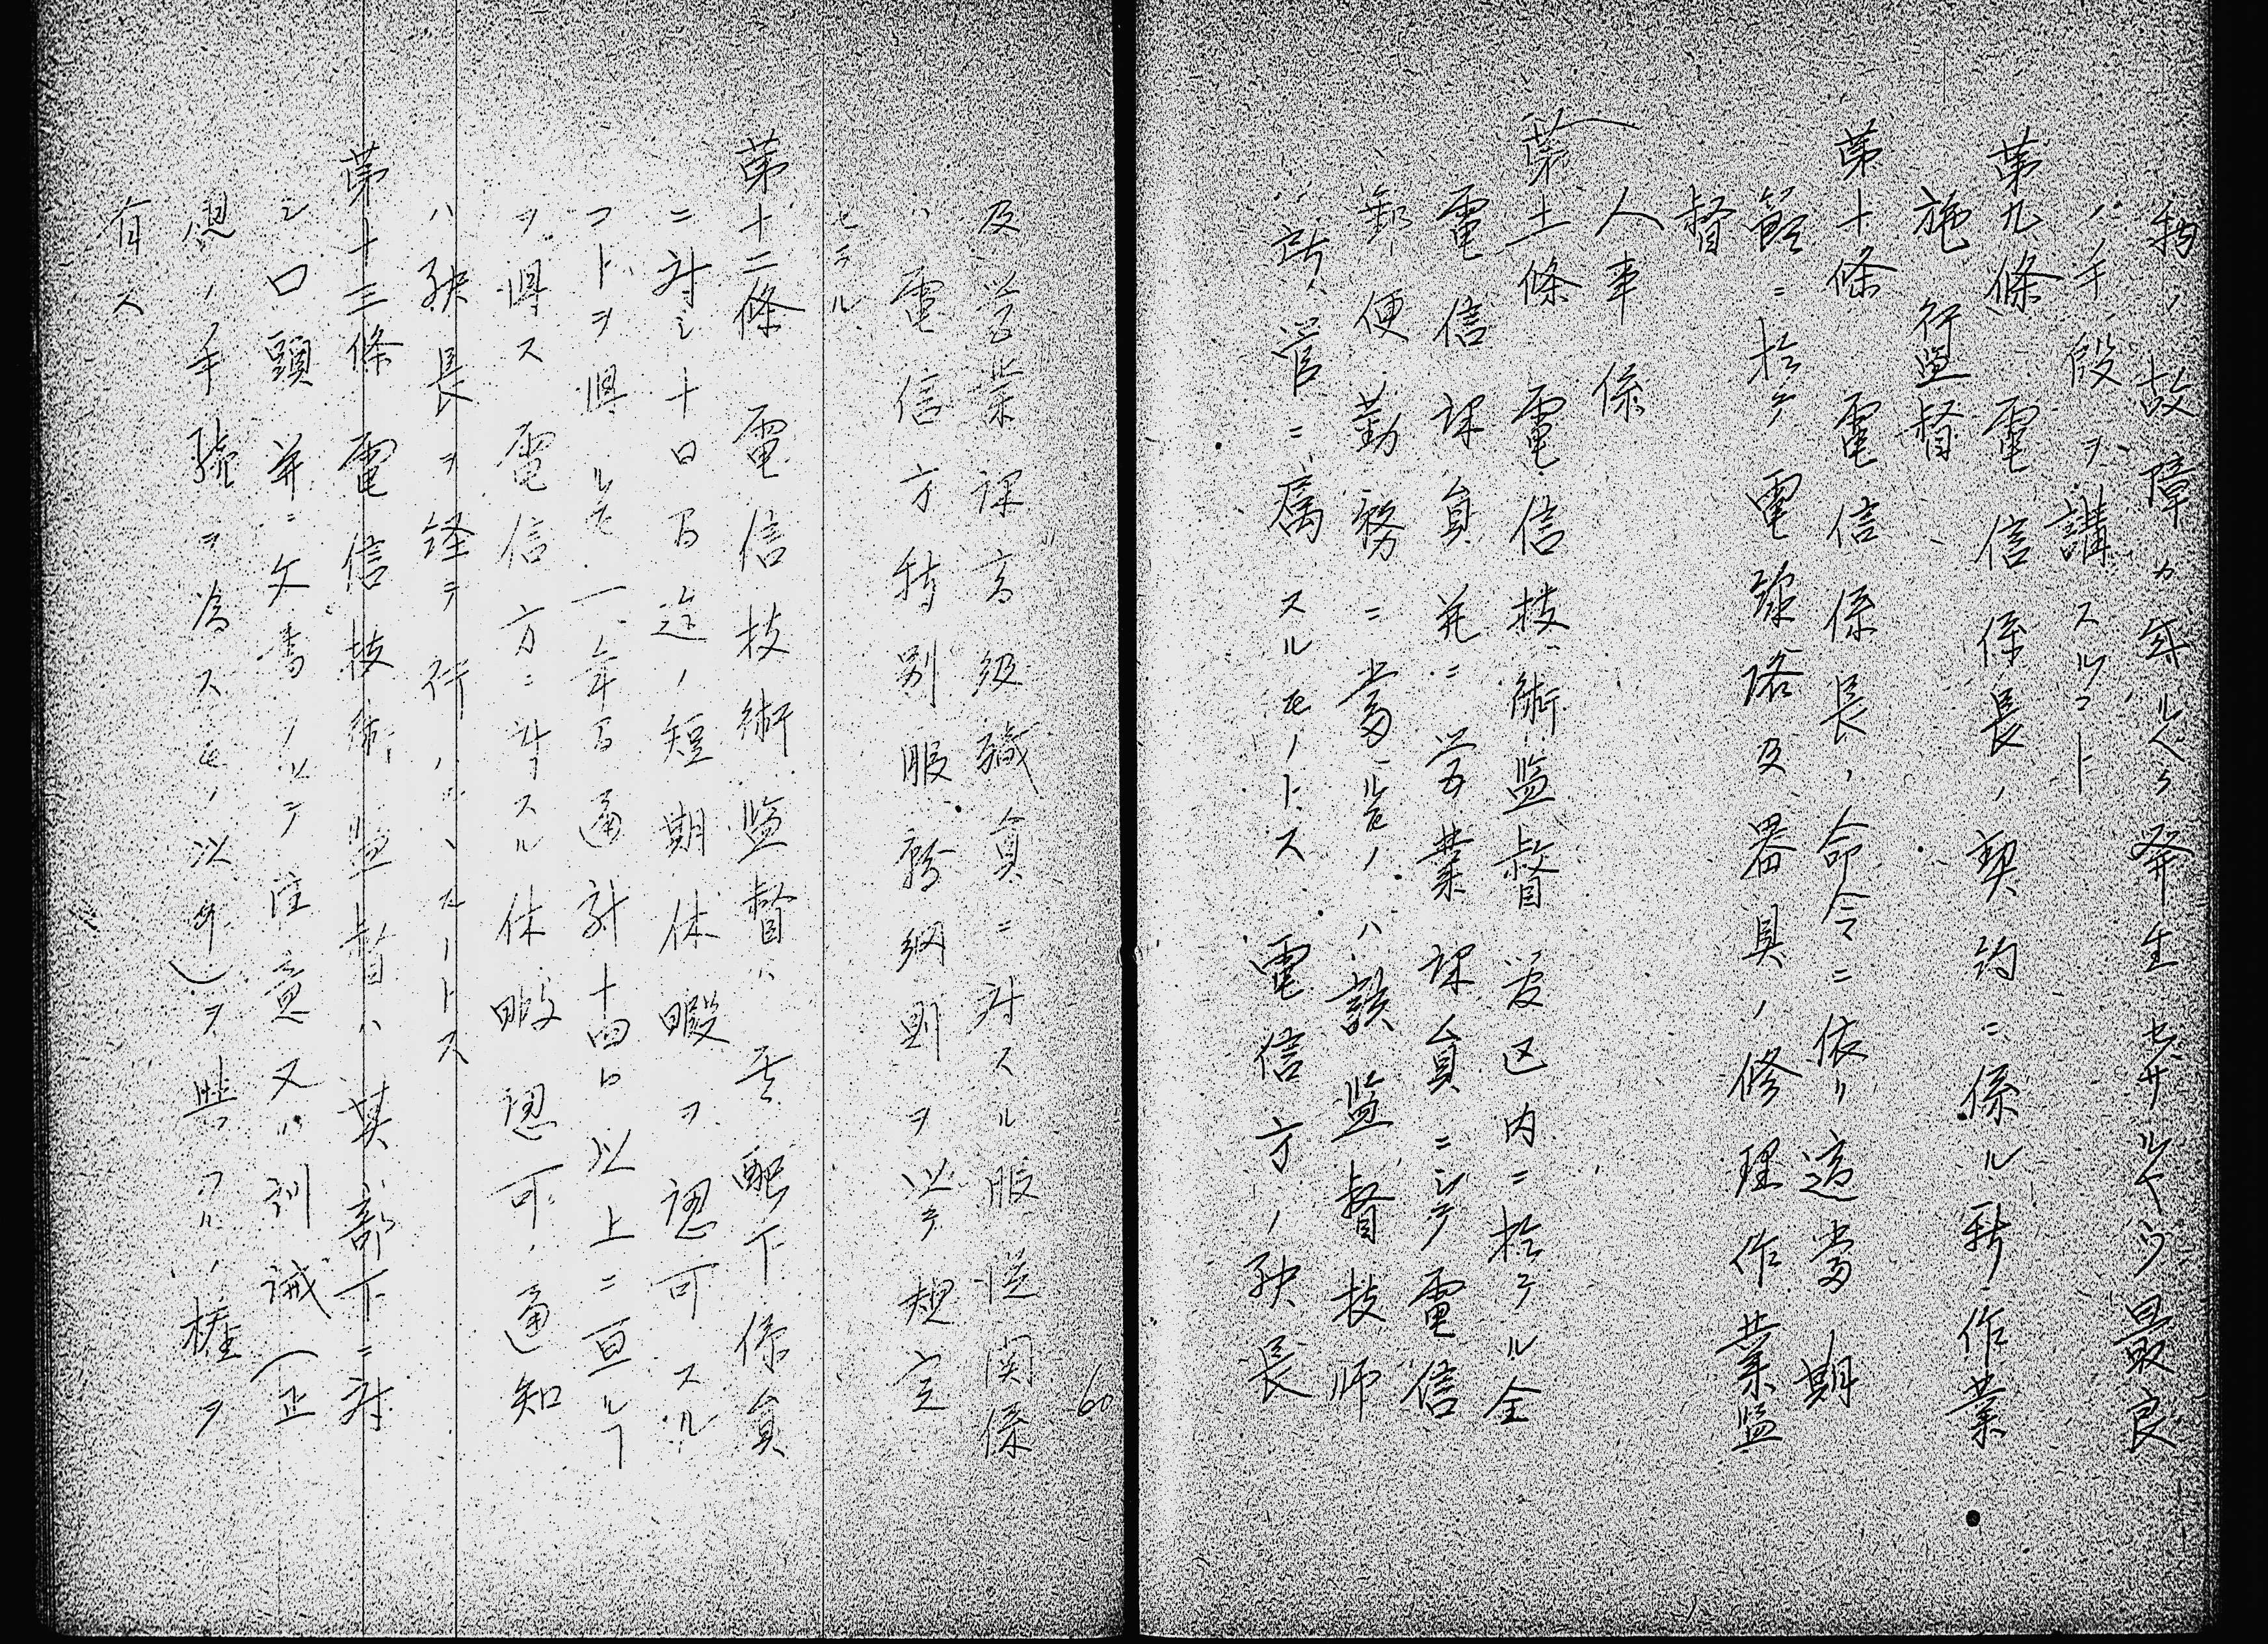 務ノ故障カ年ルヘク発生セサルヘク最良
ノ手段ヲ講スルコト
第九條 電信係長ノ契約ニ係ル新作業
施行監督
第十條 電信係長ノ命令ニ依リ適当ノ期
節ニ於テ電線路及器具ノ修理作業監
督
人事係
第十一條 電信技術監督受区内ニ於ケル全
電信課員並ニ営業課員ニシテ電信
郵便勤務ニ当ルモノハ該監督技師
ノ所管ニ属スルモノトス 電信方ノ站長
及営業課高級職員ニ対スル服従関係
ハ電信方特別服務綱則ヲ以テ規定
セラル
第十二條 電信技術監督ハ其配下係員
ニ対シ十日間迄ノ短期休暇ヲ認可スル
コトヲ得ルモ一年間通計十四日以上ニ亘ルコト
ヲ得ス 電信方ニ対スル休暇認可ノ通知
ハ站長ヲ経テ行ハルルモノトス
第十三條 電信技術監督ハ其部下ニ対
シ口頭並ニ文書ヲ以テ注意又ハ訓誡(正
ノ手続ヲ為スモノ以外)ヲ与フルノ権ヲ
有ス
60